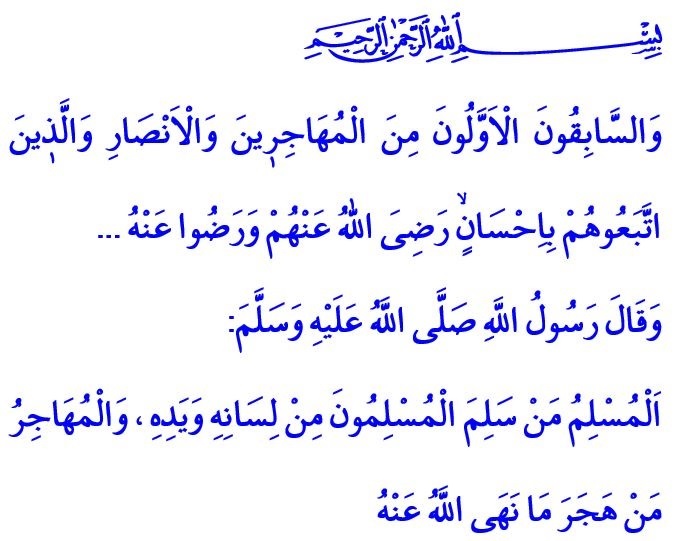 بِسْمِ اللّٰهِ الرَّحْمٰنِ الرَّحِيمِ
وَالسَّابِقُونَ الْاَوَّلُونَ مِنَ الْمُهَاجِر۪ينَ وَالْاَنْصَارِ وَالَّذ۪ينَ
اتَّبَعُوهُمْ بِاِحْسَانٍۙ رَضِيَ اللّٰهُ عَنْهُمْ وَرَضُوا عَنْهُ ...
وَقَالَ رَسُولُ اللَّهِ صَلَّى اللَّهُ عَلَيْهِ وَسَلَّمَ:
اَلْمُسْلِمُ مَنْ سَلِمَ الْمُسْلِمُونَ مِنْ لِسَانِهِ وَيَدِهِ، وَالْمُهَاجِرُ
مَنْ هَجَرَ مَا نَهَى اللَّهُ عَنْهُ